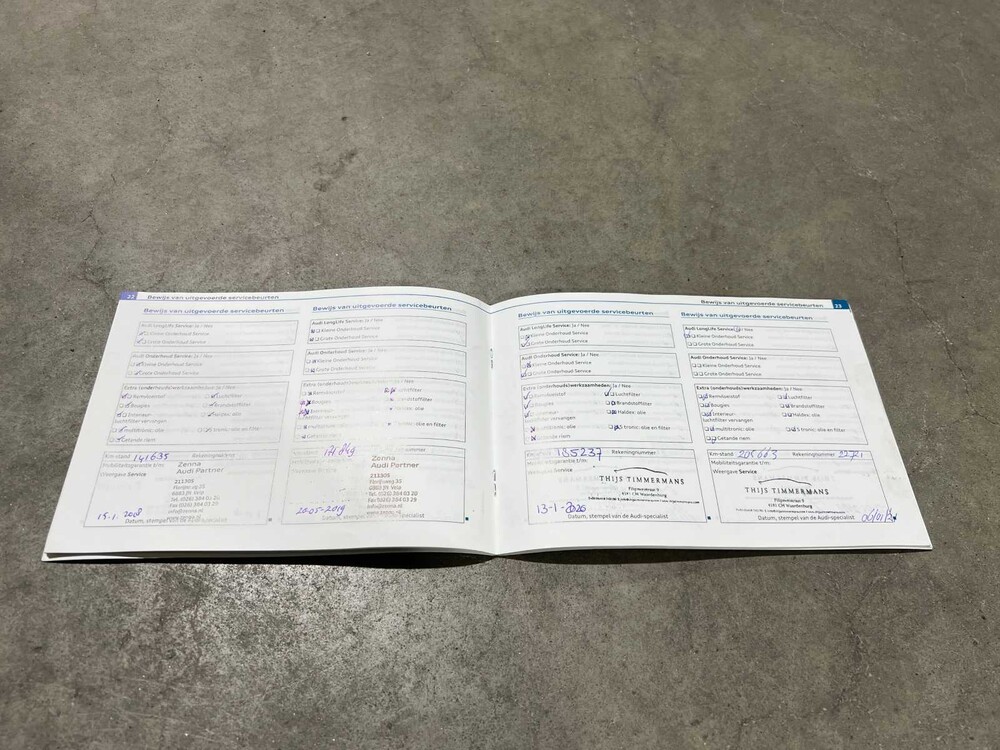 22 Bewijs van uitgevoerde servicebeurten
Bewijs van uitgevoerde servicebeurten
Audi LongLife Service: Ja / Nee
Kleine Onderhoud Service
Grote Onderhoud Service
Audi Onderhoud Service: Ja / Nee
Kleine Onderhoud Service
Grote Onderhoud Service
Extra (onderhouds)werkzaamheden: Ja / Nee
Remvloeistof
Luchtfilter
Bougies
Brandstoffilter
Interieur-
luchtfilter vervangen
Haldex: olie
multitronic: olie
S tronic: olie en filter
Getande riem
Km-stand 141635 Rekeningnummer
Mobiliteitsgarantie t/m:
Weergave Service
Zenna
Audi Partner
211305
6883 JR Velp
Tel. (026) 384 03 20
Fax (026) 384 03 29
info@zenna.nl
Datum, stempel van de Audi-specialist
Bewijs van uitgevoerde servicebeurten
Audi LongLife Service: Ja / Nee
Kleine Onderhoud Service
Grote Onderhoud Service
Audi Onderhoud Service: Ja / Nee
Kleine Onderhoud Service
Grote Onderhoud Service
Extra (onderhouds)werkzaamheden: Ja / Nee
Remvloeistof
Luchtfilter
Bougies
Brandstoffilter
luchtfilter vervangen
Haldex: olie
S tronic: olie en filter
Getande riem
171849
Zenna
Audi Partner
211305
6883 JR Velp
Tel. (026) 384 03 20
Fax (026) 384 03 29
info@zenna.nl
20-05-2019
Datum, stempel van de Audi-specialist
Bewijs van uitgevoerde servicebeurten 23
Bewijs van uitgevoerde servicebeurten
Audi LongLife Service: Ja / Nee
Kleine Onderhoud Service
Grote Onderhoud Service
Audi Onderhoud Service: Ja / Nee
Kleine Onderhoud Service
Grote Onderhoud Service
Extra (onderhouds)werkzaamheden: Ja / Nee
Remvloeistof
Luchtfilter
Bougies
Brandstoffilter
Interieur-
luchtfilter vervangen
Haldex: olie
multitronic: olie
S tronic: olie en filter
Getande riem
Km-stand 185237 Rekeningnummer
Mobiliteitsgarantie t/m:
Weergave Service
THIJS TIMMERMANS
4191 CM Waardenburg
13-1-2020
Datum, stempel van de Audi-specialist
Bewijs van uitgevoerde servicebeurten
Audi LongLife Service: Ja / Nee
Kleine Onderhoud Service
Grote Onderhoud Service
Audi Onderhoud Service: Ja / Nee
Kleine Onderhoud Service
Grote Onderhoud Service
Extra (onderhouds)werkzaamheden: Ja / Nee
Remvloeistof
Luchtfilter
Bougies
Brandstoffilter
Interieur-
luchtfilter vervangen
Haldex: olie
multitronic: olie
S tronic: olie en filter
Getande riem
Km-stand Rekeningnummer
Mobiliteitsgarantie t/m:
Weergave Service
THIJS TIMMERMANS
4191 CM Waardenburg
Datum, stempel van de Audi-specialist